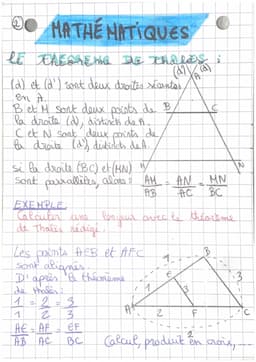 ②
MATHÉMATIQUES
LE THÉORÈME DE THALÈS :
(d) (d')
A
(d) et (d') sont deux droites sécantes
en A.
B et M sont deux points de
la droite (d), distincts de A.
B C
C et N sont deux points de
la droite (d'), distincts de A.
M N
Si la droite (BC) et (MN)
sont parrallèles, alors = AM/AB = AN/AC = MN/BC
EXEMPLE
Calculer une longueur avec le théorème
de Thalès rédigé.
Les points AEB et AFC
sont alignés.
D'après le théorème
de Thalès :
1/1 = 2/2 = 3/3
AE/AB = AF/AC = EF/BC
B
1
E
1 3 3
A 2 F C
2
Calcul, produit en croix, ...